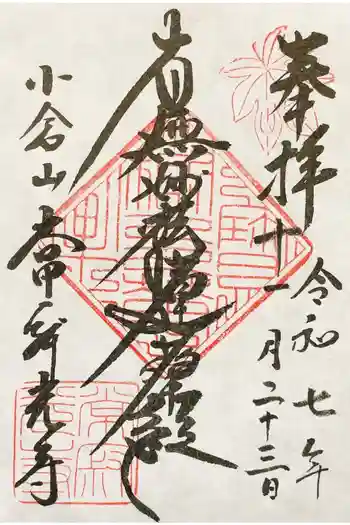 奉拝
令和七年
十一月二十三日
南無妙法蓮華経
小倉山
常寂光寺